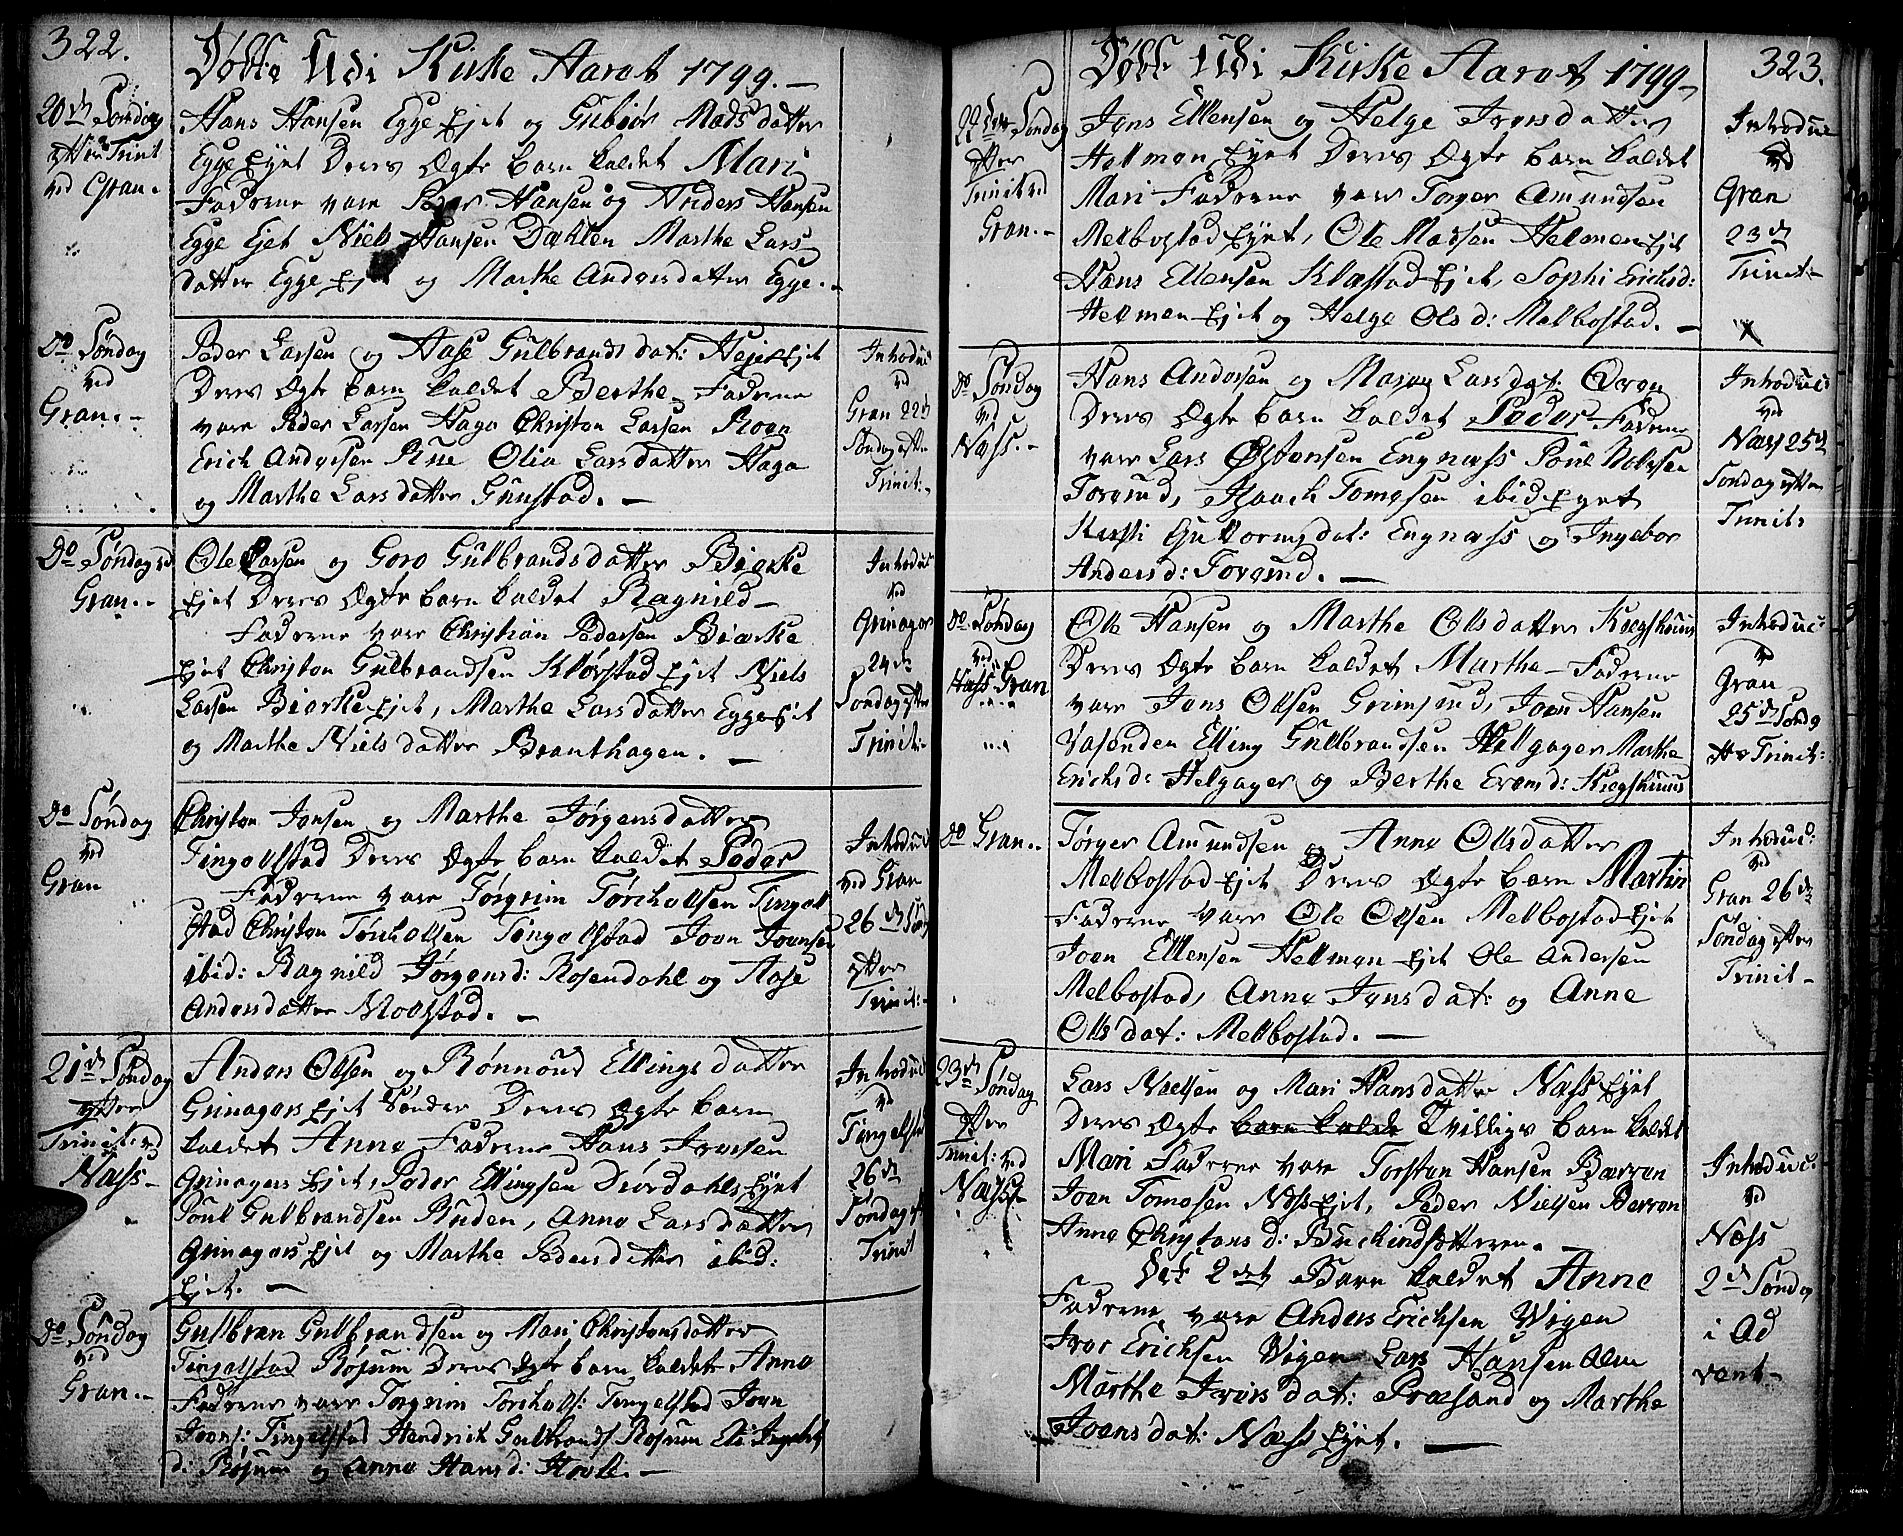 322.
Døbte Udi Kirke Aaret 1799.-
20de Søndag
efter Trinit
ved Gran.
Hans Hansen Egge Ejet og Gubiør Madsdatter
Egge Eyet Deres Ægte barn kaldet Mari
Fadderne vare Peder Hansen og Anders Hansen
Egge Ejet Niels Hansen Dæhlen Marthe Lars
datter Egge Ej og Marthe Andersdatter Egge.-
Do Søndag
ved
Gran.-
Peder Larsen og Aase Gulbrands dat: Ejet
Deres Ægte barn kaldet Berthe. Fadderne
vare Peder Larsen Haga Christen Larsen Roen
Erich Andersen Rue Olia Larsdatter Haga
og Marthe Larsdatter Gunstad.-
Introduc
ved
Gran 22de
Søndag efter
Trinit:-
Do Søndag ved
Gran.-
Ole Larsen og Goro Gulbrandsdatter Bierke
Ejet Deres Ægte barn kaldet Ragnild-
Fadderne vare Christian Pedersen Bierke
Ejet Christen Gulbrandsen Klørstad Ejet Niels
Larsen Bierke Ejet, Marthe Larsdatter Egge Ejet
og Marthe Nielsdatter Branthagen.-
Introduc
ved
Grinager
24de
Søndag efter
Trinit:-
Do Søndag
ved
Gran
Christen Jensen og Marthe Jørgensdatter
Tingelstad Deres Ægte barn kaldet Peder
Fadderne vare Torgrim Torchelsen Tingel
stad Christen Torchelsen Tingelstad Joen Joensen
ibid: Ragnild Jørgensd: Rosendahl og Aase
Andersdatter Molstad.-
Introduc
ved Gran
26de Søn
efter
Trinit:-
21de Søndag
efter
Trinit: ved
Næss-
Anders Olsen og Rønnoud Ellingsdatter
Grinagers Ejet Søndre Deres Ægte barn
kaldet Anne Fadderne Hans Iversen
Grinagers Ejet, Peder Ellingsen Diørdahls Eyet
Poul Gulbrandsen Ruden, Anne Larsdatter
Grinagers Ejet og Marthe Pedersdatter ibid:
Ejet.-
Introduc
ved
Tingelstad
26de
Søndag ef
Trinit
Do Søndag
ved
Gran.-
Gulbran Gulbrandsen og Mari Christensdatter
Tingelstad Røsum Deres Ægte barn kaldet Anne
Fadderne vare Torgrim Torchels: Tingelstad Joen
Joens: Tingelstad Hendrich Gulbrands Røsum Eli
d: Røsum og Anne Hansd: Hovle.-
323.
Døbte Udi Kirke Aaret 1799-
22de Søndag
efter
Trinit ved
Gran.-
Jens Ellensen og Helge Iversdatter
Helmen Eyet Deres Ægte barn kaldet
Mari Fadderne vare Torger Amundsen
Melbostad Eyet, Ole Madsen Helmen Ejet
Hans Ellensen Klæstad Ejet, Sophi Erichsd:
Helmen Ejet og Helge Olsd: Melbostad.-
Introduc
ved
Gran
23de
Trinit-
Do Søndag
ved
Næss.-
Hans Andersen og Larsdat:
Deres Ægte barn kaldet Peder Fadderne
vare Lars Østensen Engnæss Poul
Torgund, Isaach Tomesen ibid Eyet
Kirsti Guttormsdat: Engnæss og Ingebor
Andersd: Torgund.-
Introduc:
ved
Næss 25de
Søndag efter
Trinit:
Do Søndag
ved
Næss Gran
Ole Hansen og Marthe Olsdatter Kiegshuus
Deres Ægte barn kaldet Marthe- Fadderne
vare Jens Olsen Grimsrud, Joen Hansen
Vasenden Elling Gulbrandsen Helgager Marthe
Erichsd: Helgager og Berthe Evensd: Kiegshuus
Introduc:
ved
Gran
25de Søndag
efter Trinit:
Do Gran.-
Torger Amundsen og Anne Olsdatter
Melbostad Ejet Deres Ægte barn Martin
Fadderne vare Ole Olsen Melbostad Ejet
Joen Ellensen Helmen Ejet Ole Andersen
Melbostad, Anne Jensdat: og Anne
Olsdat: Melbostad.-
Introduc:
ved
Gran 26de
Søndag efter
Trinit-
23de Søndag
efter
Trinit: ved
Næss
Lars Nielsen og Mari Hansdatter Næss Eyet
Deres Ægte barn kalde Tvillige barn kaldet
Mari Fadderne vare Torsten Hansen Bærren
Joen Tomesen Næss Ejet, Peder Nielsen Berren
Anne Christens d: Buchindsetteren.-
Det 2det Barn kaldet Anne
Fadderne vare Anders Erichsen Vigen
Iver Erichsen Vigen Lars Hansen Alm
Marthe Iversdat: Præsand og Marthe
Joensdat: Næss Eyet.-
Introduc:
ved
Næss
2de Søndag
i Ad
vent-